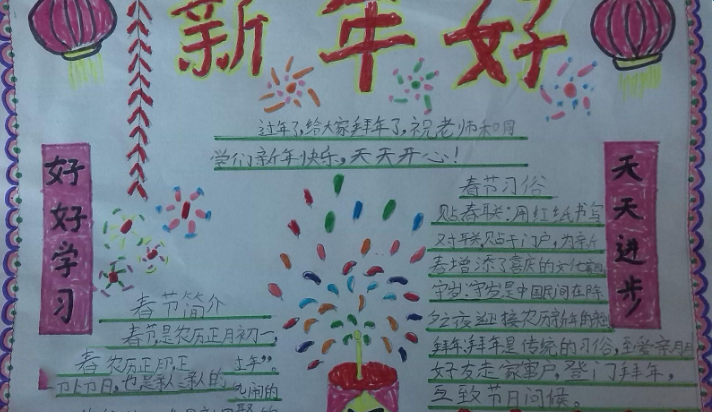 新年好
过年了,给大家拜年了,祝老师和同
学们新年快乐,天天开心!
好好学习
天天进步
春节简介
春节是农历正月初一,
春节习俗
贴春联:用红纸书写
对联,贴于门户,为新
春增添了喜庆的文化
守岁:守岁是中国民间在除
夕夜迎接农历新年的
拜年:拜年是传统的习俗,至爱亲朋
好友走家窜户,登门拜年,
互致节日问候。